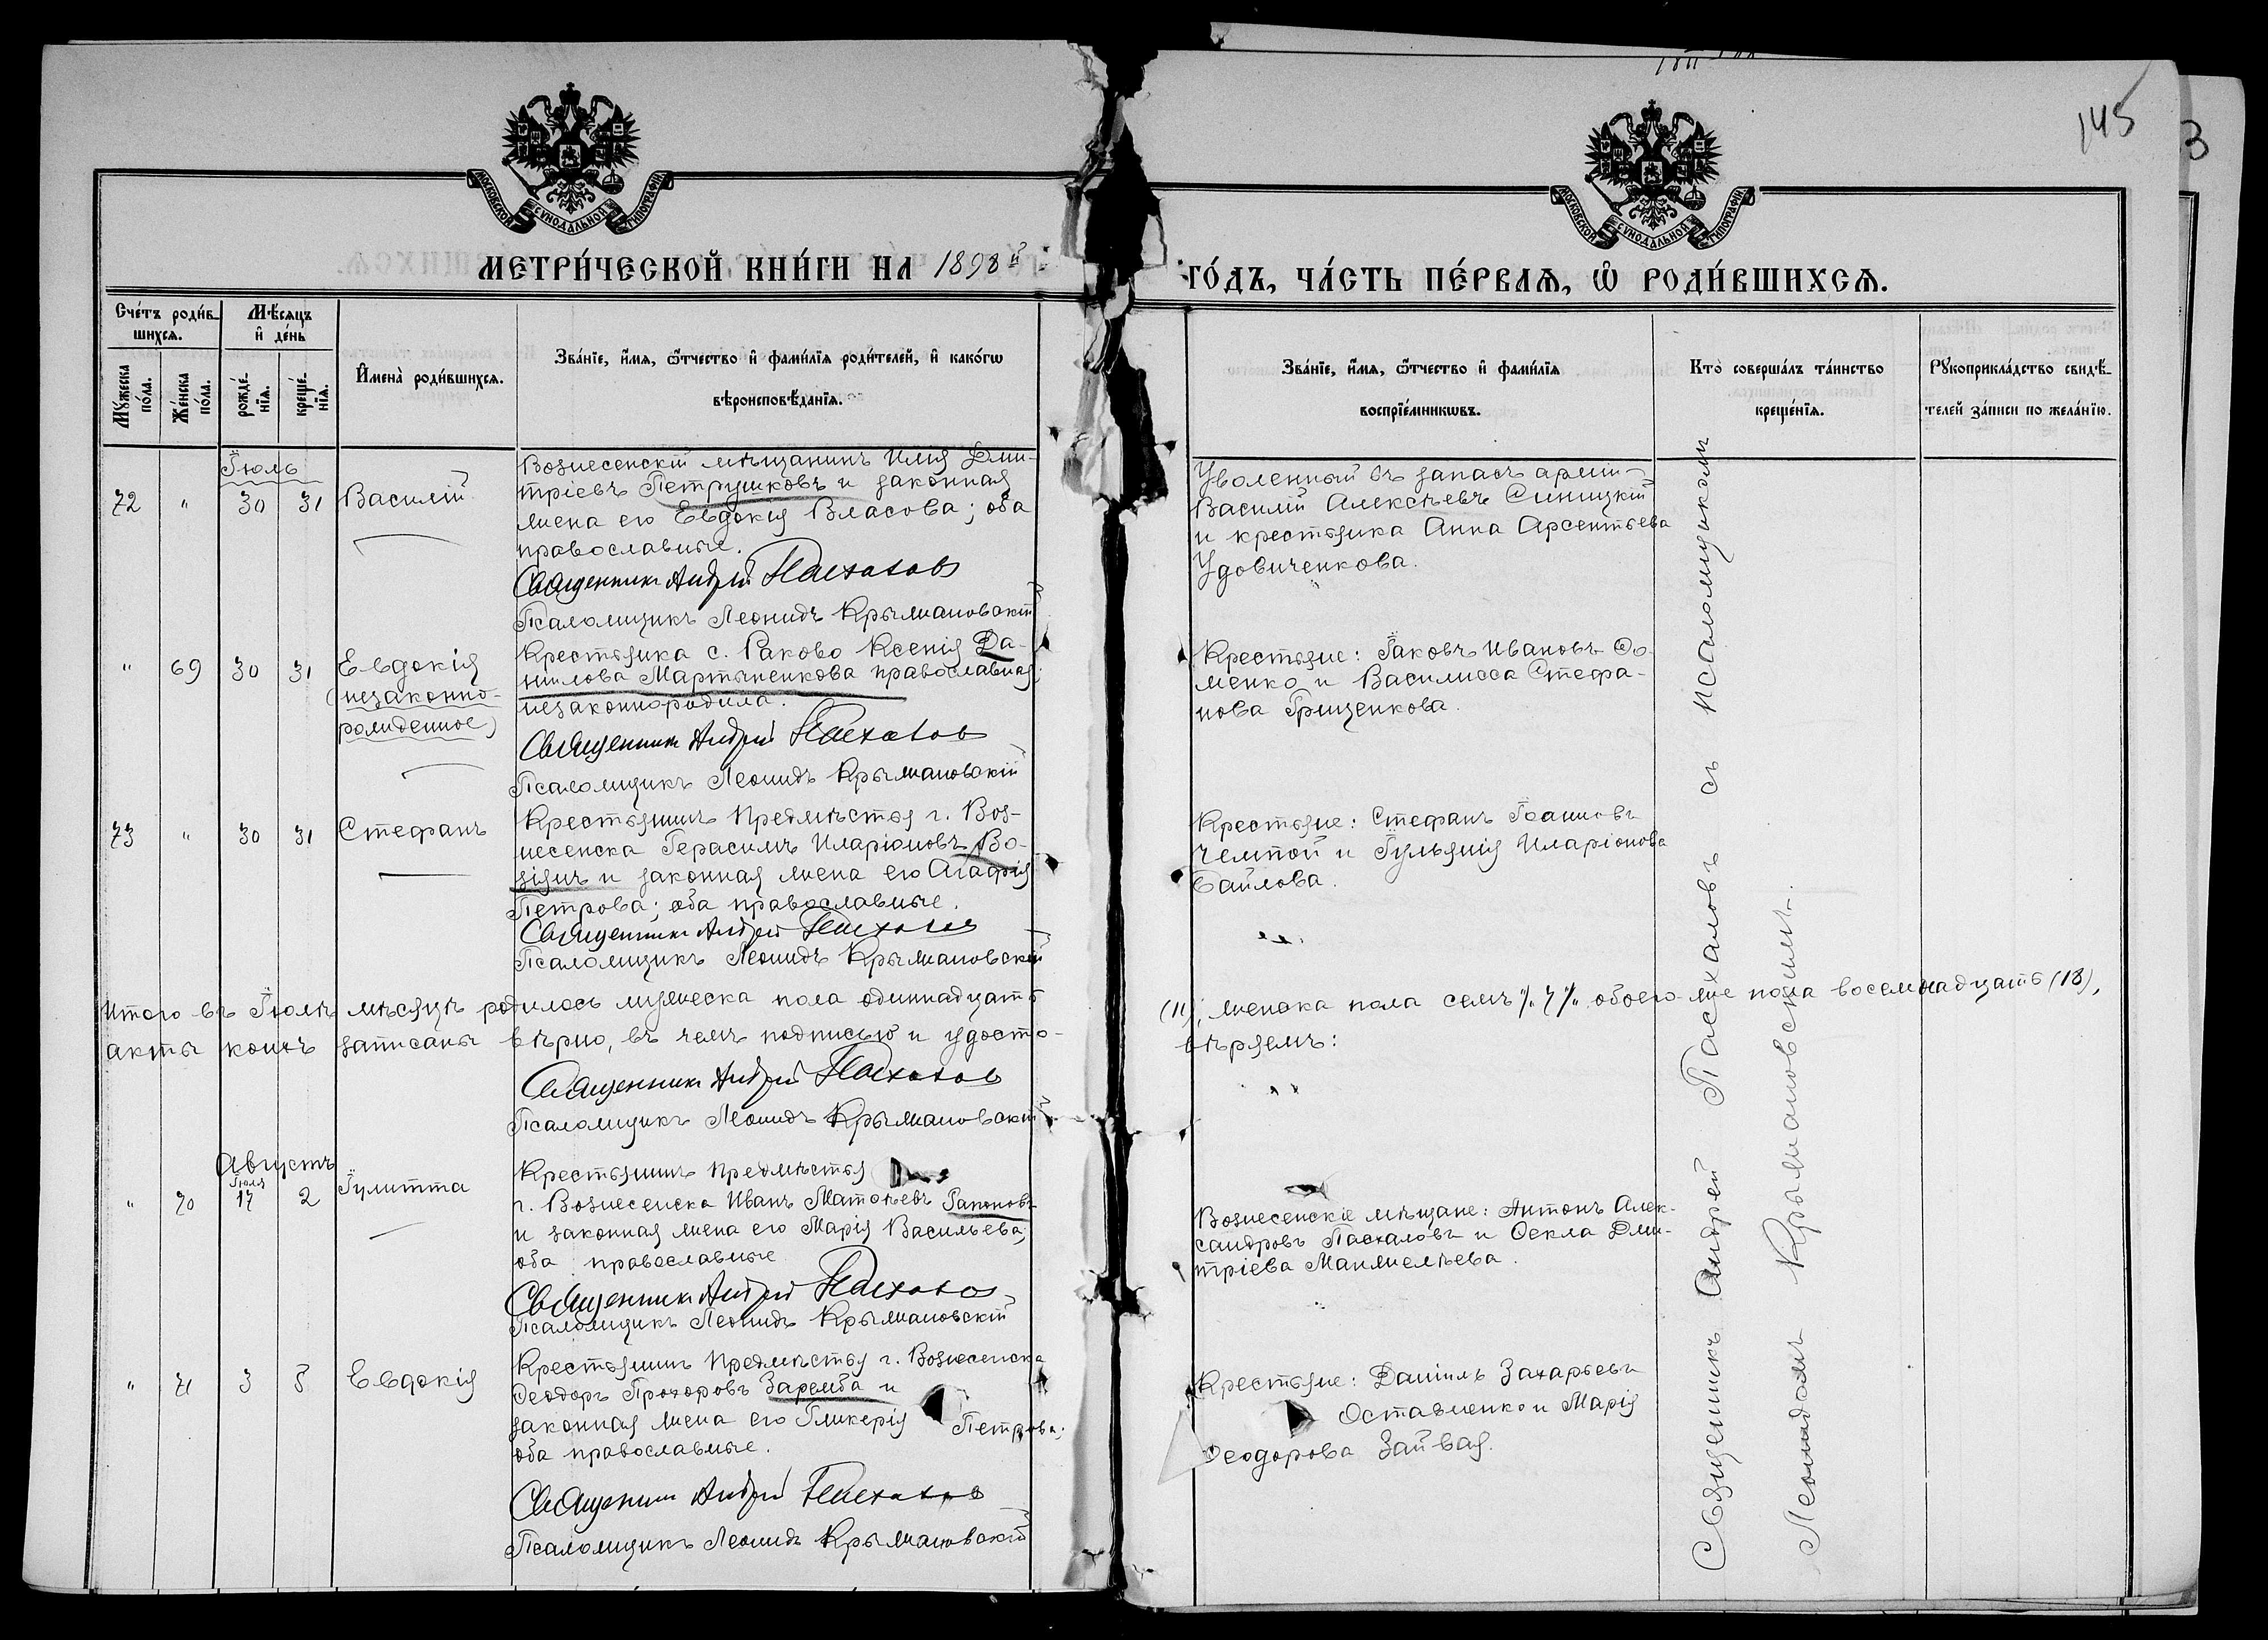 145
3
МОСКОВСКОЙ СѴНОДАЛЬНОЙ ТИПОГРАФІИ
МОСКОВСКОЙ СѴНОДАЛЬНОЙ ТИПОГРАФІИ
МЕТРИ́ЧЕСКОЙ КНИ́ГИ НА 1898й
ГО́ДЪ, ЧА́СТЬ ПЕ́РВАѦ, Ѽ РОДИ́ВШИХСѦ.
Сче́тъ роди́в-
шихсѧ.
Мꙋ́жеска по́ла.
Же́нска по́ла.
Мѣ́сѧцъ
и҆ де́нь
рожде́-
нїѧ.
креще́-
нїѧ.
И҆мена̀ роди́вшихсѧ.
Зва́нїе, и҆́мѧ, ѻ҆́тчество и҆ фами́лїѧ роди́телей, и҆ како́гѡ
вѣроисповѣ́данїѧ.
Зва́нїе, и҆́мѧ, ѻ҆́тчество и҆ фами́лїѧ
воспрїе́мникѡвъ.
Кто̀ соверша́лъ та́инство
креще́нїѧ.
Рꙋкоприкла́дство свидѣ́-
телей за́писи по жела́нїю.
Іюль
72 " 30 31 Василій
Вознесенскій мѣщанинъ Илія Дми-
тріевъ Петрушковъ и законная
жена его Евдокія Власова; оба
православные.
Священникъ Андрей Пасхаловъ
Псаломщикъ Леонидъ Крыжановскій
Уволенный въ запасъ арміи
Василій Алексѣевъ Синицкій
и крестьянка Анна Арсентьева
Удовиченкова.
" 69 30 31 Евдокія
(незаконно-
рожденное)
Крестьянка с. Раково Ксенія Да-
нилова Мартыненкова православная;
незаконнородила.
Священникъ Андрей Пасхаловъ
Псаломщикъ Леонидъ Крыжановскій
Крестьяне: Іаковъ Ивановъ До-
менко и Василисса Стефа-
нова Грищенкова.
73 " 30 31 Стефанъ
Крестьянинъ Предмѣстья г. Воз-
несенска Герасимъ Иларіоновъ Бо-
зіянъ и законная жена его Агафія
Петрова; оба православные.
Священникъ Андрей Пасхаловъ
Псаломщикъ Леонидъ Крыжановскій
Крестьяне: Стефанъ Іоанновъ
Чемпой и Іульянія Иларіонова
Байлова.
Итого въ Іюлѣ мѣсяцѣ родилось мужеска пола одиннадцать (11), женска пола семь "/.7"/. обоего же пола восемнадцать (18),
акты коихъ записаны вѣрно, въ чемъ подписью и удосто-
вѣряемъ:
Священникъ Андрей Пасхаловъ
Псаломщикъ Леонидъ Крыжановскій
Августъ
Іюля
" 70 17 2 Іулитта
Крестьянинъ Предмѣстья
г. Вознесенска Иванъ Матѳѣевъ Гапоновъ
и законная жена его Марія Васильева;
оба православные
Священникъ Андрей Пасхаловъ
Псаломщикъ Леонидъ Крыжановскій
Вознесенскіе мѣщане: Антонъ Алек-
сандровъ Пасхаловъ и Ѳекла Дми-
тріева Манжелѣева.
" 71 3 5 Евдокія
Крестьянинъ Предмѣстья г. Вознесенска
Ѳеодоръ Прохоровъ Заремба и
законная жена его Гликерія Петрова;
оба православные.
Священникъ Андрей Пасхаловъ
Псаломщикъ Леонидъ Крыжановскій
Крестьяне: Даніилъ Захарьевъ
Оставненко и Марія
Ѳеодорова Зайвая.
Священникъ Андрей Пасхаловъ съ псаломщикомъ
Леонидомъ Крыжановскимъ.